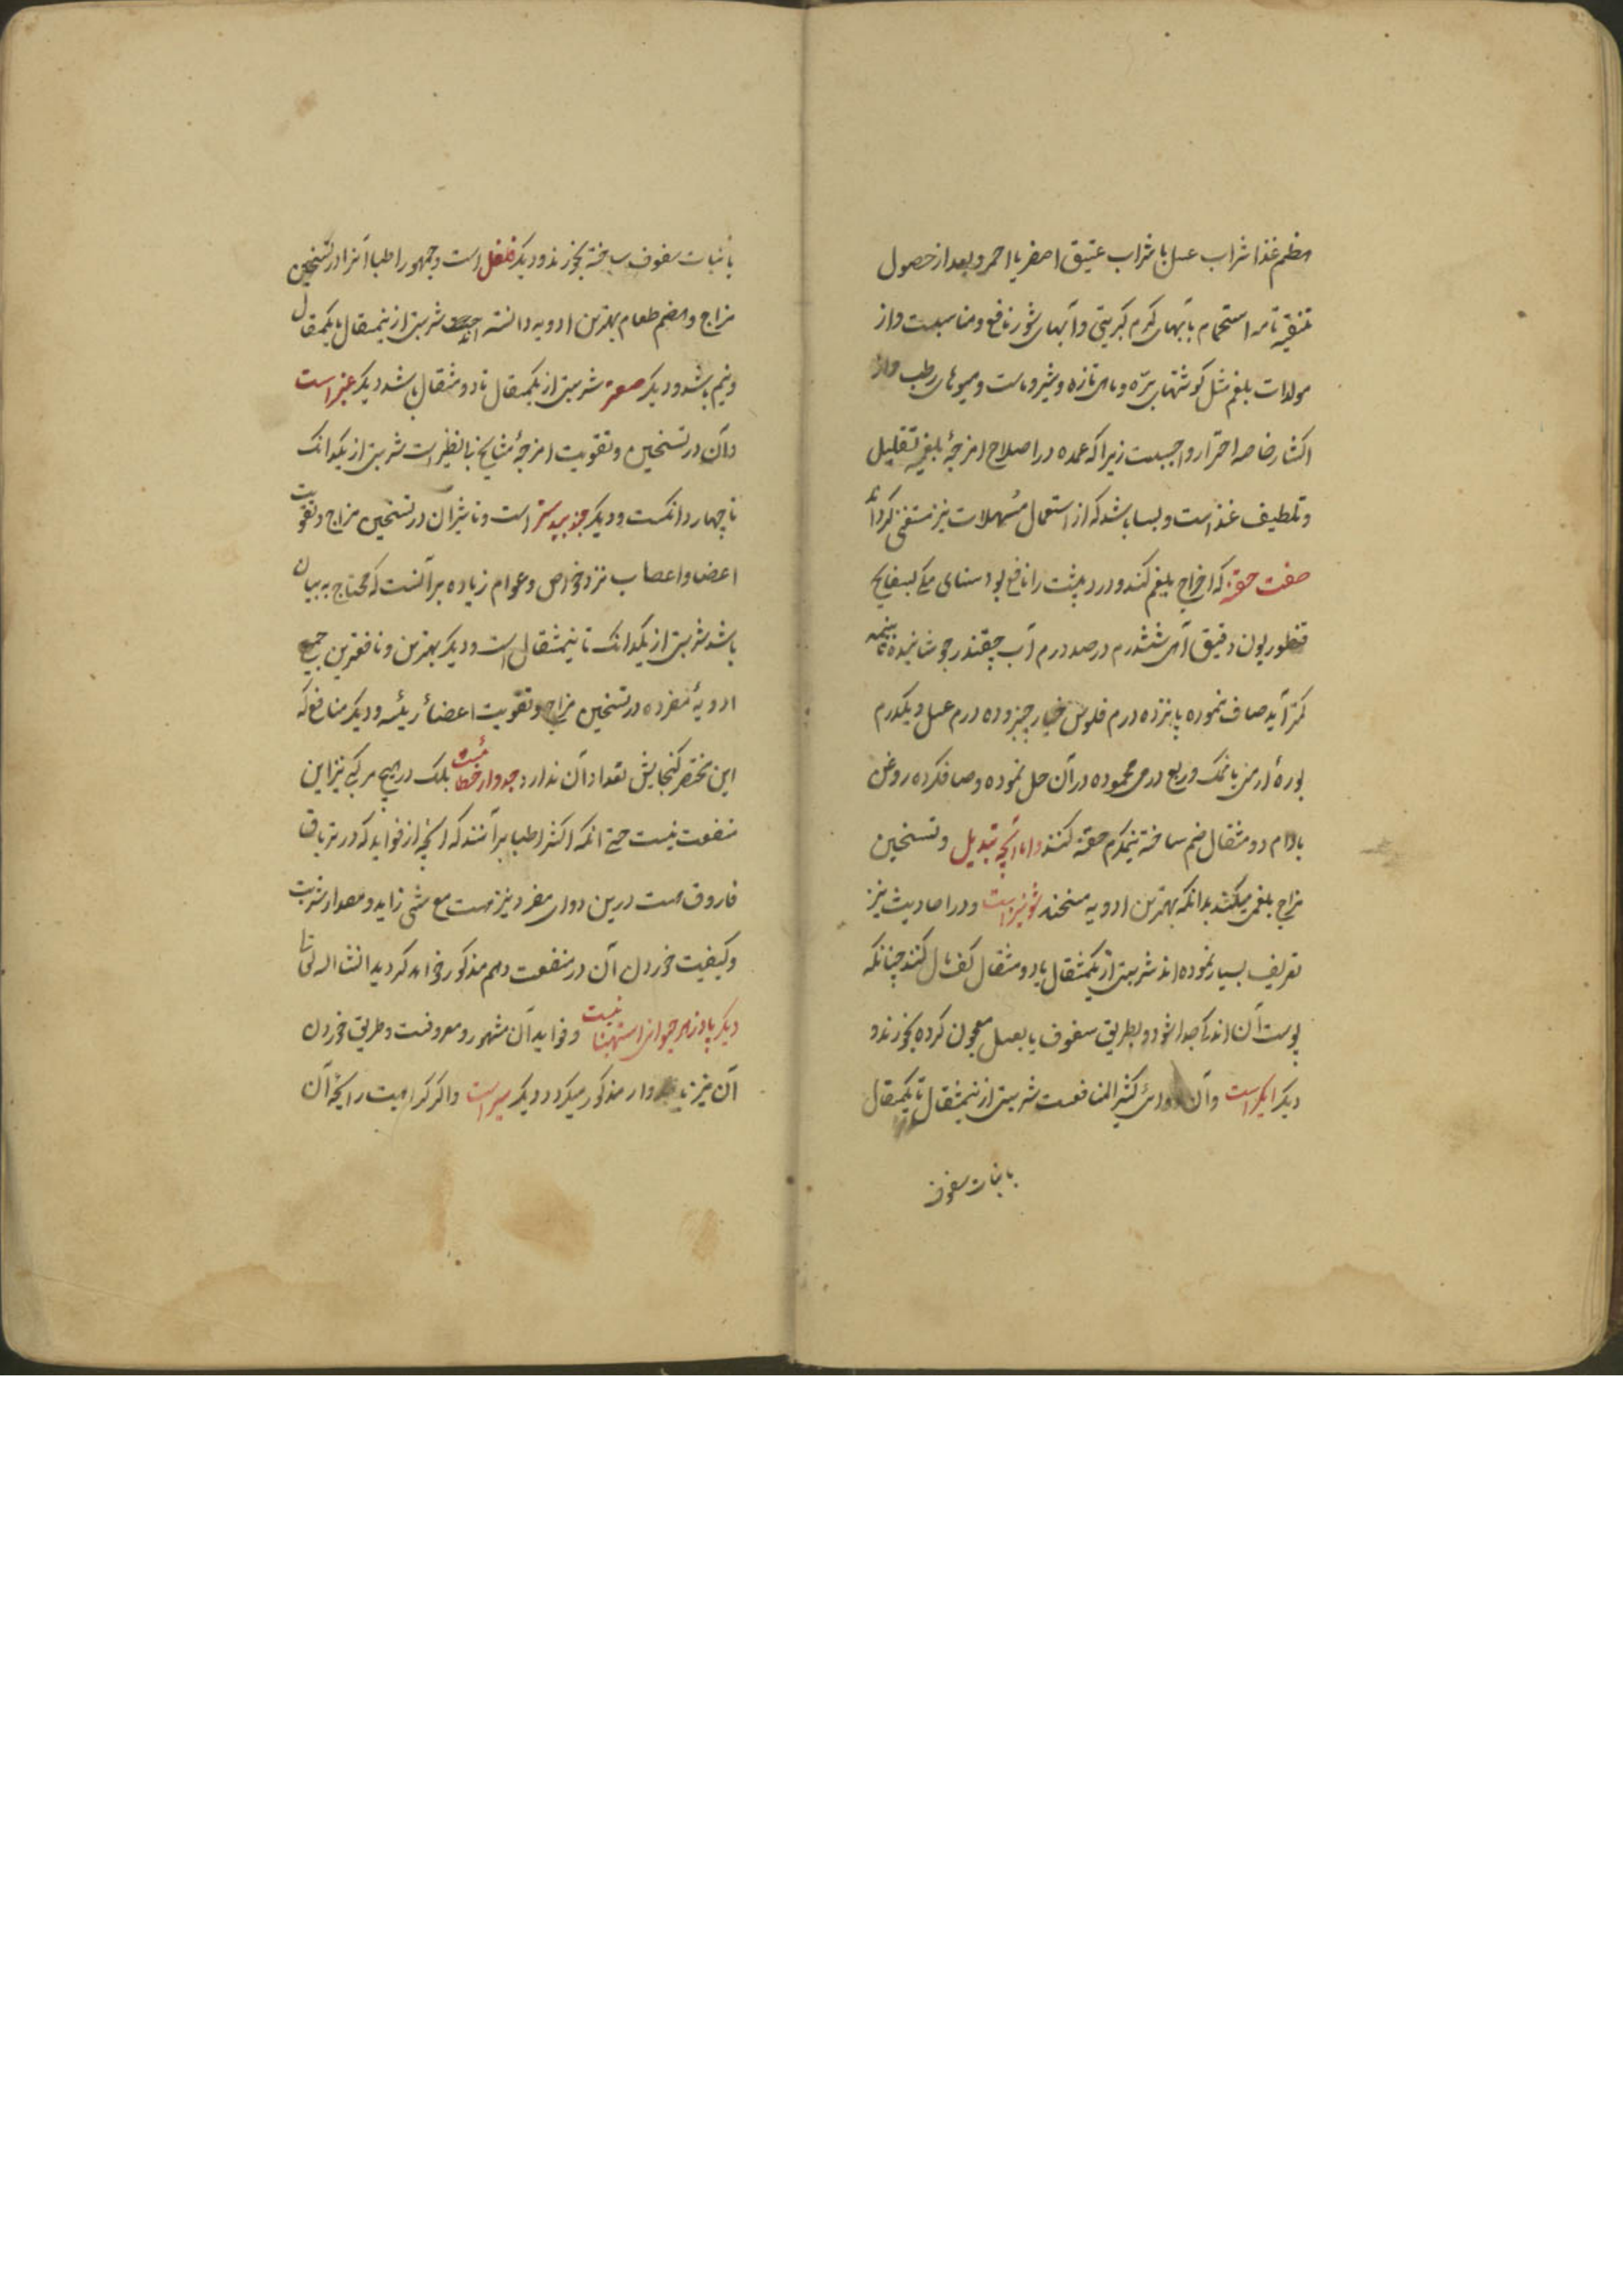 هضم غذا شراب عسل یا شراب عتیق اصفر یا احمر و بعد از حصول
تنقیه تامه استحمام بآبهای گرم کبریتی و آبهای شور نافع و مناسبست و از
مولدات بلغم مثل گوشتهای بره و ماهی تازه و شیر و ماست و میوهای رطب و از
اکثار خاصه احتراز واجبست زیرا که عمده در اصلاح امزجهٔ بلغمیه تقلیل
و تلطیف غذاست و بسا باشد که از استعمال مسهلات نیز مستغنی گرداند
صفت حقنه که اخراج بلغم کند و درد پشت را نافع بود سنای مکی بسفایج
قنطوریون دقیق آهن ششدرم در صد درم آب چقندر جوشانیده تا بنیمه
کمتر آید صاف نموده پانزده درم فلوس خیار چنبر و ده درم عسل و یکدرم
بورهٔ ارمنی یا نمک و ربع درمی محموده در آن حل نموده و صاف کرده روغن
بادام دو مثقال ضم ساخته نیمگرم حقنه کنند و اما آنچه تبدیل و تسخین
مزاج بلغمی میکند بدانکه بهترین ادویه مسخنه شونیز است و در احادیث نیز
تعریف بسیار نموده‌اند شربتی از یکمثقال یا دو مثقال کف مال کنند چنانکه
پوست آن اندک جدا شود و بطریق سفوف یا بعسل معجون کرده بخورند و
دیگر اگیر است و آن دوائی کثیر المنافعست شربتی از نیمثقال تا یکمثقال
با نبات سفوف
با نبات سفوف ساخته بخورند و دیگر فلفل است و جمهور اطبا آنرا در تسخین
مزاج و هضم طعام بهترین ادویه دانسته اند شربتی از نیمثقال تا یکمثقال
و نیم باشد و دیگر صعتر شربتی از یکمثقال تا دو مثقال باشد دیگر عنبر است
و آن در تسخین و تقویت امزجهٔ مشایخ بانظیر است شربتی از یکدانک
تا چهار دانکست و دیگر جندبیدستر است و تاثیر آن در تسخین مزاج و تقویت
اعضا و اعصاب نزد خواص و عوام زیاده بر آنست که محتاج به بیان
باشد شربتی از یکدانک تا نیمثقال است و دیگر بهترین و نافعترین جمیع
ادویهٔ مفرده در تسخین مزاج و تقویت اعضاء رئیسه و دیگر منافع که
این مختصر گنجایش تعداد آن ندارد جدوار خطائیست بلکه در هیچ مرکبی نیز این
منفعت نیست حتی انکه اکثر اطبا بر آنند که انچه از فواید که در تریاق
فاروق هست درین دوای مفرد نیز هست مع شئ زاید و مقدار شربت
و کیفیت خوردن آن در منفعت دهم مذکور خواهد گردید انشا الله تعالی
دیگر پادزهر حیوانی است و فواید آن مشهور و معروفست و طریق خوردن
آن نیز با جدوار مذکور میگردد دیگر سیر است و اگر کراهیت رایحهٔ آن